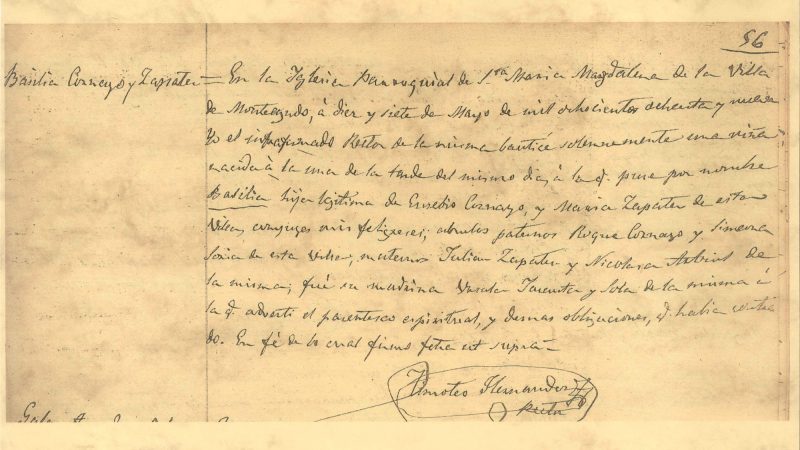 56
Basilia Cornago y Zapater = En la Iglesia Parroquial de Sta Maria Magdalena de la Villa
de Monteagudo, à diez y siete de Mayo de mil ochocientos ochenta y nueve
Yo el infrafirmado Rector de la misma bauticé solemnemente una niña
nacida à la una de la tarde del mismo dia, à la q. puse por nombre
Basilia hija legitima de Eusebio Cornago, y Maria Zapater de esta
Villa, conyuges mis feligreses; abuelos paternos Roque Cornago y Simeona
de esta Villa; maternos Julian Zapater y Nicolasa de
la misma; fué su madrina y Sola de la misma à
la q. adverti el parentesco espiritual, y demas obligaciones, q. habia contrai
do. En fé de lo cual firmo fcha ut supra =
Timoteo Hernandez
Rector